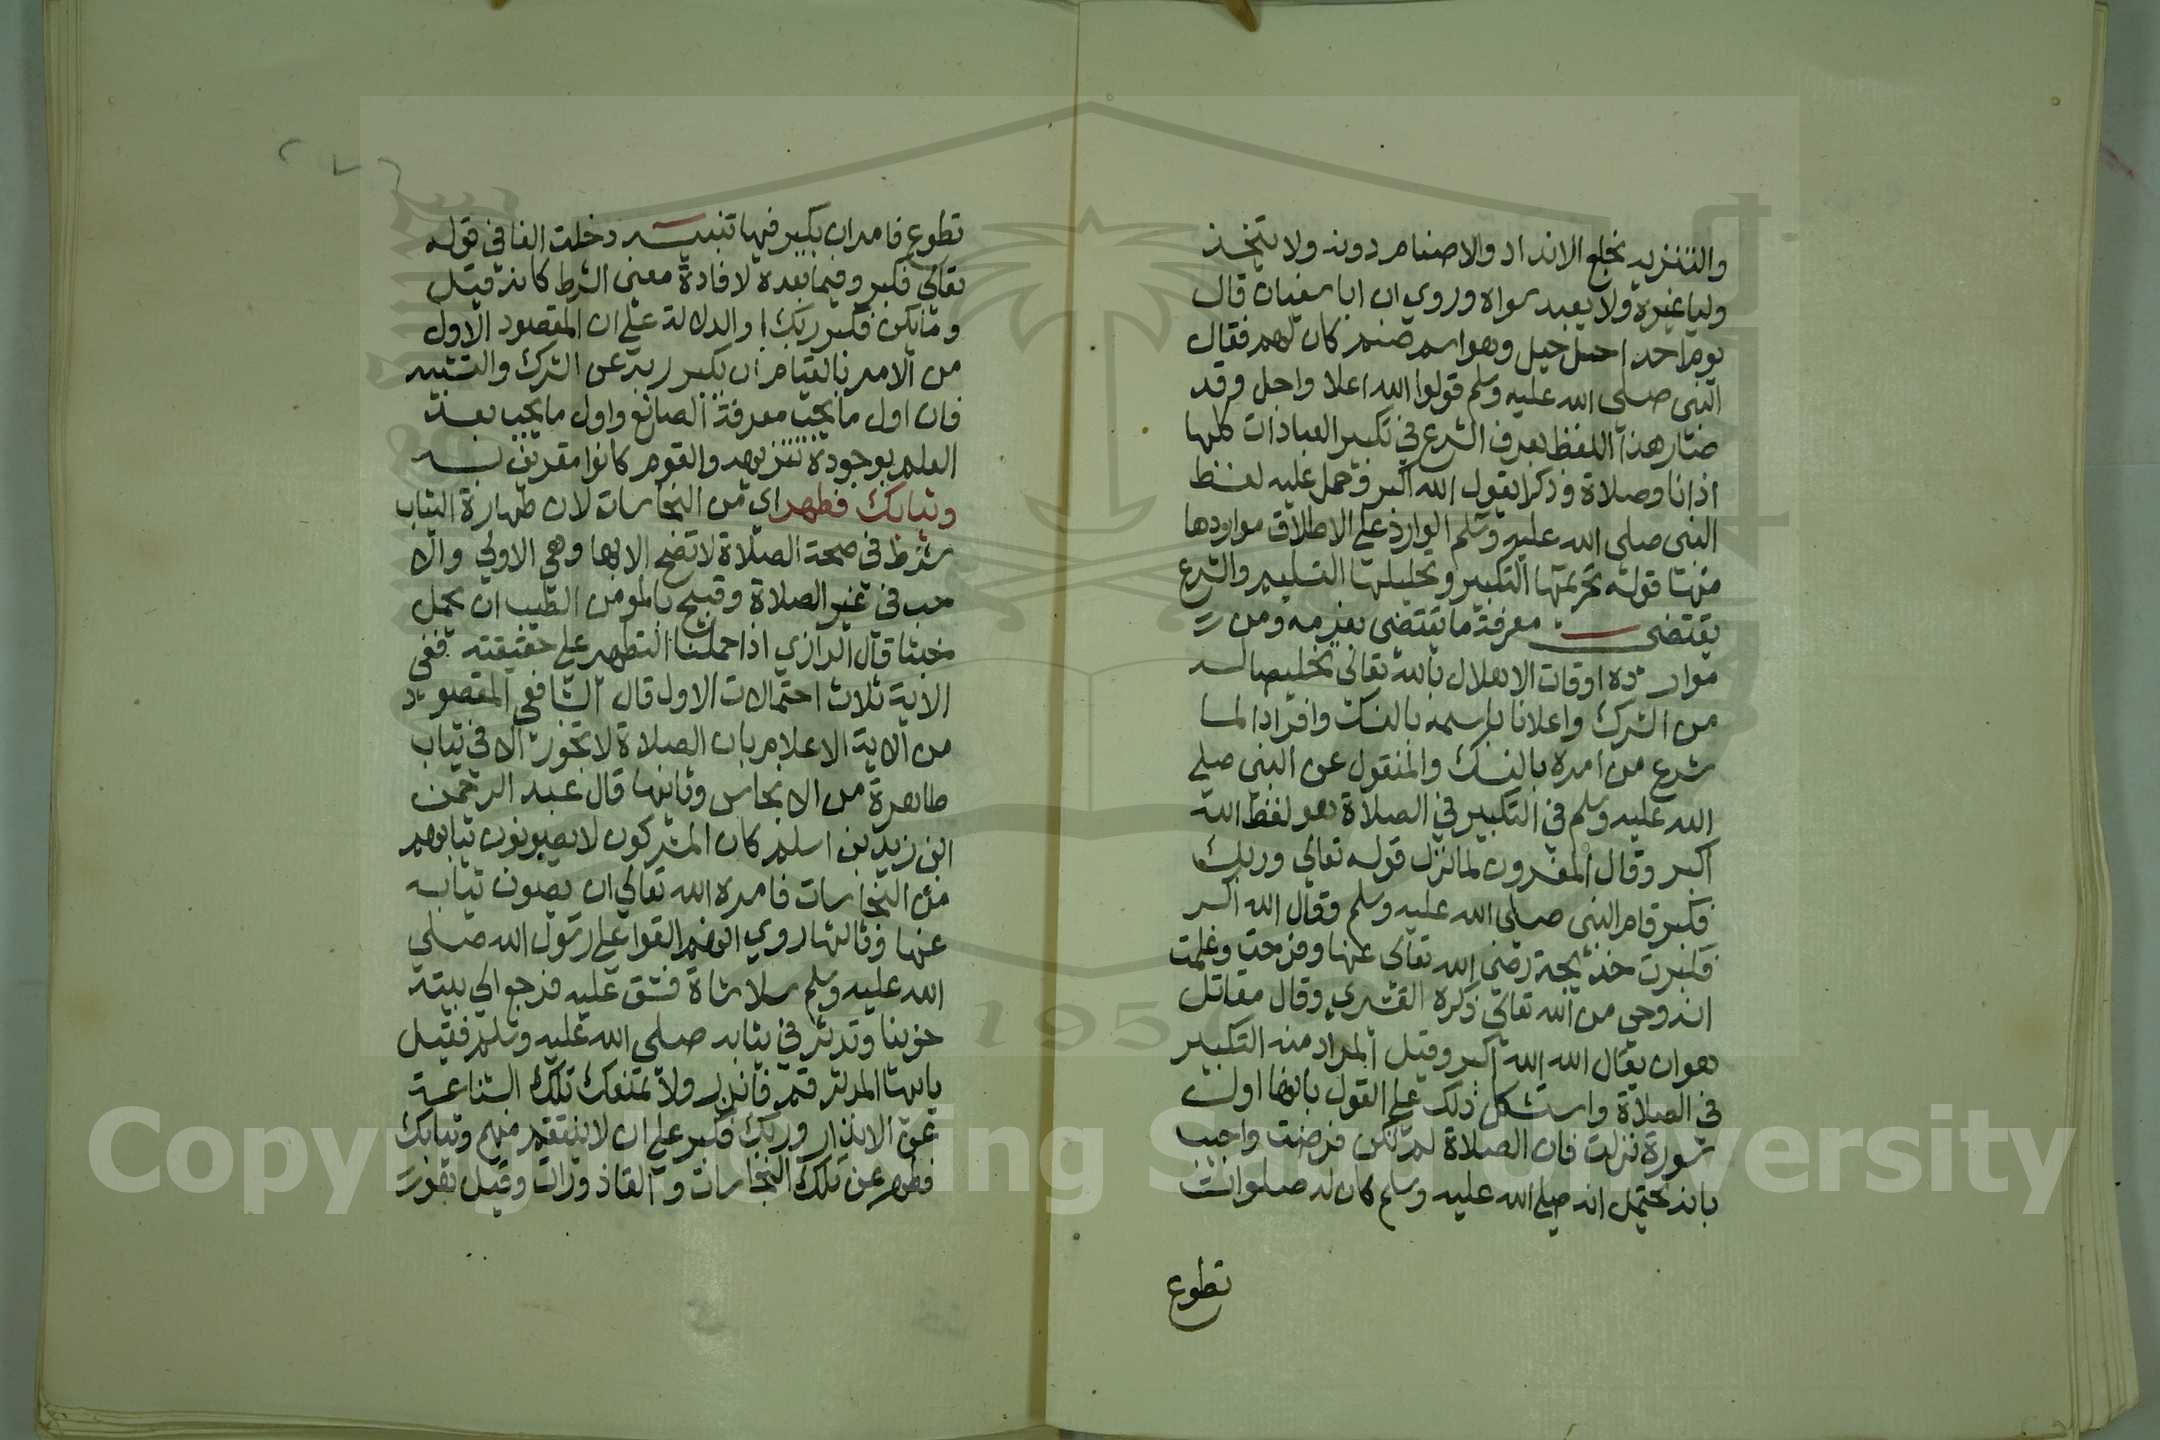 والتنزيه بخلع الانداد والاصنام دونه ولا يتخذ
وليا غيره ولا يعبد سواه وروي ان ابا سفيان قال
يوم احد اعل هبل وهو اسم صنم كان لهم فقال
النبي صلى الله عليه وسلم قولوا الله اعلا واجل وقد
صار هذا اللفظ بعرف الشرع في تكبير العبادات كلها
اذانا وصلاة وذكرا بقول الله اكبر وحمل عليه لفظ
النبي صلى الله عليه وسلم الوارد على الاطلاق مواردها
منها قوله تحريمها التكبير وتحليلها التسليم والشرع
يقتضي معرفة ما يقتضي بعرفه ومن
موارده اوقات الاهلال بالله تعالى تخليصا له
من الشرك واعلانا باسمه بالنسك وافرادا لما
شرع من امره بالنسك والمنقول عن النبي صلى
الله عليه وسلم في التكبير في الصلاة هو لفظ الله
اكبر وقال المفسرون لما نزل قوله تعالى وربك
فكبر قام النبي صلى الله عليه وسلم وقال الله اكبر
فكبرت خديجة رضي الله تعالى عنها وفرحت وعلمت
انه وحي من الله تعالى ذكره القشيري وقال مقاتل
هو ان يقال الله الله اكبر وقيل المراد منه التكبير
في الصلاة واستشكل ذلك على القول بانها اول
سورة نزلت فان الصلاة لم تكن فرضت واجيب
بانه يحتمل انه صلى الله عليه وسلم كان له صلوات
تطوع
تطوع فامر ان يكبر فيها تنبيه دخلت الفا في قوله
تعالى فكبر وفيما بعده لافادة معنى الشرط كانه قيل
وما يكن فكبر ربك او الدلالة على ان المقصود الاول
من الامر بالقيام ان يكبر ربه عن الشرك والتشبيه
فان اول ما يجب معرفة الصانع واول ما يجب بعد
العلم بوجوده تنزيهه والقوم كانوا مقرين به
وثيابك فطهر اي من النجاسات لان طهارة الثياب
شرط في صحة الصلاة لا تصح الا بها وهي الاولى والا
حب في غير الصلاة وقبيح بالمومن الطيب ان يحمل
خبثا قال الرازي اذا حملنا التطهير على حقيقته ففي
الاية ثلاث احتمالات الاول قال الشافعي المقصود
من الاية الاعلام بان الصلاة لا تجوز الا في ثياب
طاهرة من الانجاس وثانيها قال عبد الرحمن
ابن زيد بن اسلم كان المشركون لا يصونون ثيابهم
من النجاسات فامره الله تعالى ان يصون ثيابه
عنها وثالثها روي انهم القوا على رسول الله صلى
الله عليه وسلم سلا شاة فشق عليه فرجع الى بيته
حزينا وتدثر في ثيابه صلى الله عليه وسلم فقيل
يايها المدثر قم فانذر ولا تمنعك تلك الشناعة
عن الانذار وربك فكبر على ان لا ينتقم منهم وثيابك
فطهر عن تلك النجاسات والقاذورات وقيل